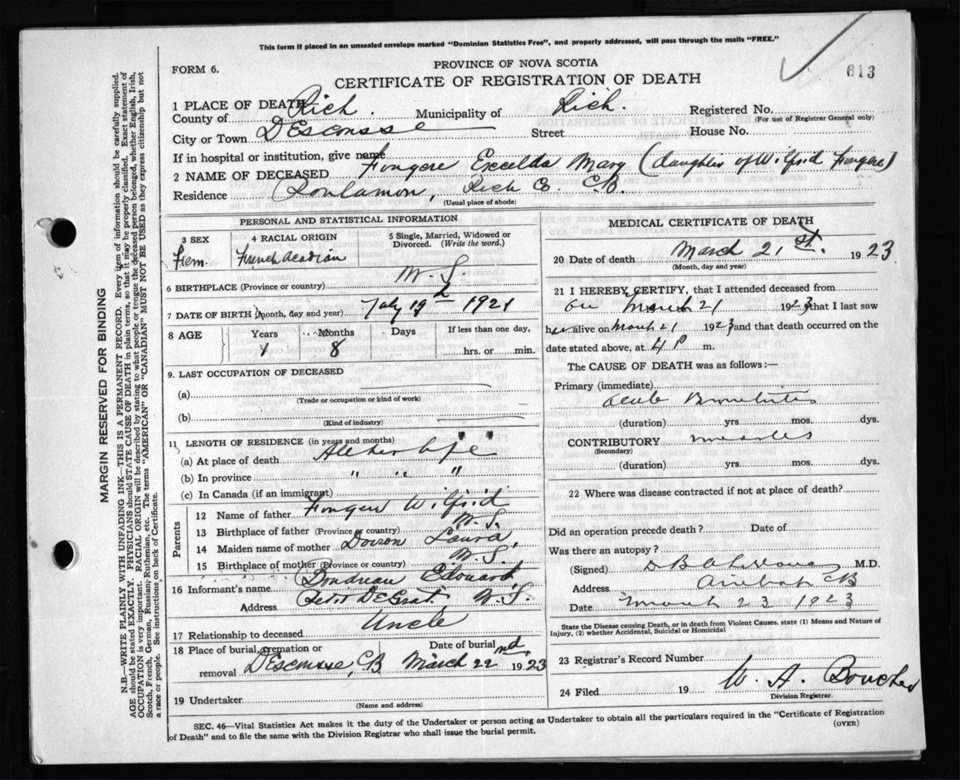 This form if placed in an unsealed envelope marked "Dominion Statistics Free", and properly addressed, will pass through the mails "FREE."
PROVINCE OF NOVA SCOTIA
FORM 6.
CERTIFICATE OF REGISTRATION OF DEATH
613
1 PLACE OF DEATH
County of Rich. Municipality of Rich. Registered No.
(For use of Registrar General only)
City or Town DEscousse Street House No.
If in hospital or institution, give name
2 NAME OF DECEASED Fongere Excelda Mary (daughter of Wilfrid Fongere)
Residence Poulamon, Rich Co. C.B.
(Usual place of abode)
PERSONAL AND STATISTICAL INFORMATION
3 SEX 4 RACIAL ORIGIN 5 Single, Married, Widowed or Divorced. (Write the word.)
Fem. French Acadian
6 BIRTHPLACE (Province or country) N.S.
7 DATE OF BIRTH (Month, day and year) July 19th 1921
8 AGE Years Months Days If less than one day,
1 8 hrs. or min.
9. LAST OCCUPATION OF DECEASED
(a)
(Trade or occupation or kind of work)
(b)
(Kind of industry)
11 LENGTH OF RESIDENCE (in years and months)
(a) At place of death All her life
(b) In province " " "
(c) In Canada (if an immigrant)
Parents
12 Name of father Fongere Wilfrid
13 Birthplace of father (Province or country) N.S.
14 Maiden name of mother Doiron Laura,
15 Birthplace of mother (Province or country) N.S.
16 Informant's name Boudreau Edouard
Address Petit DeGrat N.S.
17 Relationship to deceased Uncle
18 Place of burial, cremation or removal DEscousse, C.B. Date of burial March 22nd, 1923
19 Undertaker
(Name and address)
MEDICAL CERTIFICATE OF DEATH
20 Date of death March 21st. 1923
(Month, day and year)
21 I HEREBY CERTIFY, that I attended deceased from
on March 21 1923 that I last saw
her alive on March 21 1923 and that death occurred on the
date stated above, at 4 P m.
The CAUSE OF DEATH was as follows:—
Primary (immediate)
Acute Bronchitis
(duration) yrs. mos. dys.
CONTRIBUTORY measles
(Secondary)
(duration) yrs mos. dys.
22 Where was disease contracted if not at place of death?
Did an operation precede death? Date of
Was there an autopsy?
(Signed) M.D.
Address Arichat CB
Date March 23 1923
State the Disease causing Death, or in death from Violent Causes, state (1) Means and Nature of Injury, (2) whether Accidental, Suicidal or Homicidal
23 Registrar's Record Number
24 Filed 19 W. A. Boucher
Division Registrar.
SEC. 46—Vital Statistics Act makes it the duty of the Undertaker or person acting as Undertaker to obtain all the particulars required in the "Certificate of Registration
of Death" and to file the same with the Division Registrar who shall issue the burial permit.
(OVER)
MARGIN RESERVED FOR BINDING
N.B.—WRITE PLAINLY WITH UNFADING INK—THIS IS A PERMANENT RECORD. Every item of information should be carefully supplied.
AGE should be stated EXACTLY. PHYSICIANS should STATE CAUSE OF DEATH in plain terms, so that it may be properly classified. Exact statement of
OCCUPATION is very important. RACIAL ORIGIN will be described by stating to what people or tongue the deceased person belonged, whether English, Irish,
Scotch, French, German, Russian, Ruthenian, etc. The terms "AMERICAN" OR "CANADIAN" MUST NOT BE USED as they express citizenship but not
a race or people. See instructions on back of Certificate.